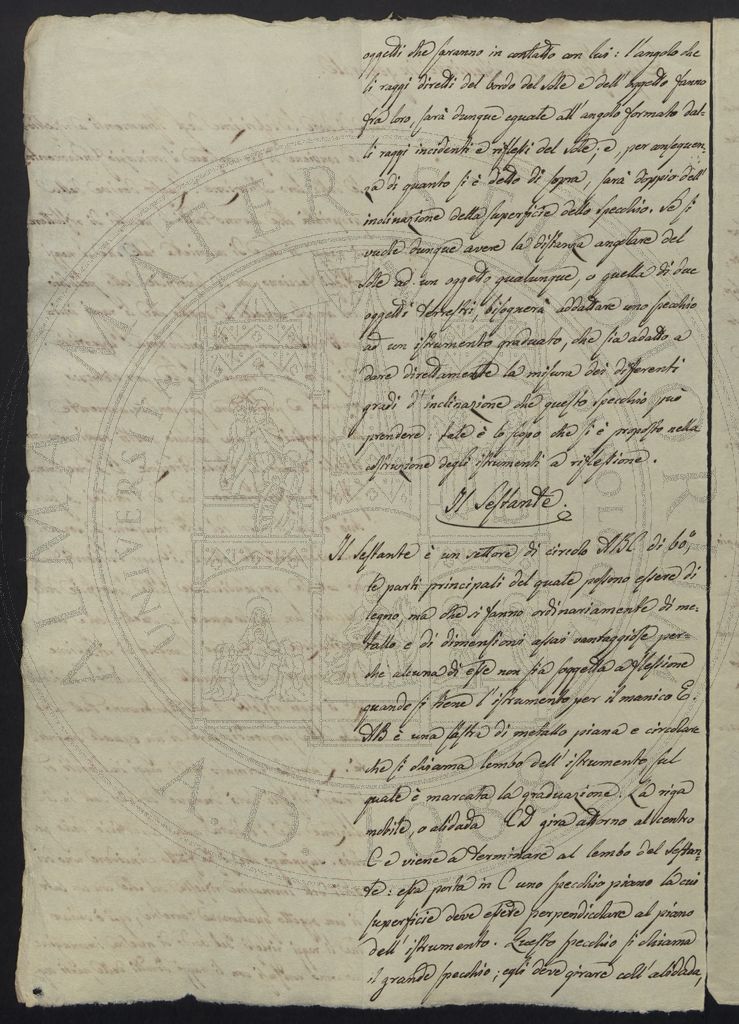 oggetti che saranno in contatto con lui: l'angolo che
li raggi diretti del bordo del Sole e dell'oggetto fanno
fra loro, sarà dunque eguale all'angolo formato dal-
li raggi incidenti e riflessi del Sole; e, per conseguen-
za di quanto si è detto di sopra, sarà doppio dell'
inclinazione della superficie dello specchio. Se si
vuole dunque avere la distanza angolare del
Sole ad un oggetto qualunque, o quella di due
oggetti terrestri, bisognerà addattare uno specchio
ad un istrumento graduato, che sia adatto a
dare direttamente la misura dei differenti
gradi d'inclinazione che questo specchio può
prendere: tale è lo scopo che si è proposto nella
costruzione degli istrumenti a riflessione.
Il Sestante.
Il Sestante è un settore di circolo ABC di 60°,
le parti principali del quale possono essere di
legno, ma che si fanno ordinariamente di me-
tallo e di dimensioni assai vantaggiose per-
chè alcuna di esse non sia soggetta a flessione
quando si tiene l'istrumento per il manico E.
AB è una lastra di metallo piana e circolare
che si chiama lembo dell'istrumento, sul
quale è marcata la graduazione. La riga
mobile, o alidada CD gira attorno al centro
C e viene a terminare al lembo del Sestan-
te: essa porta in C uno specchio piano la cui
superficie deve essere perpendicolare al piano
dell'istrumento. Questo specchio si chiama
il grande specchio; egli deve girare coll'alidada,
ALMA MATER STUDIORUM
UNIVERSITÀ
A.D. 1088